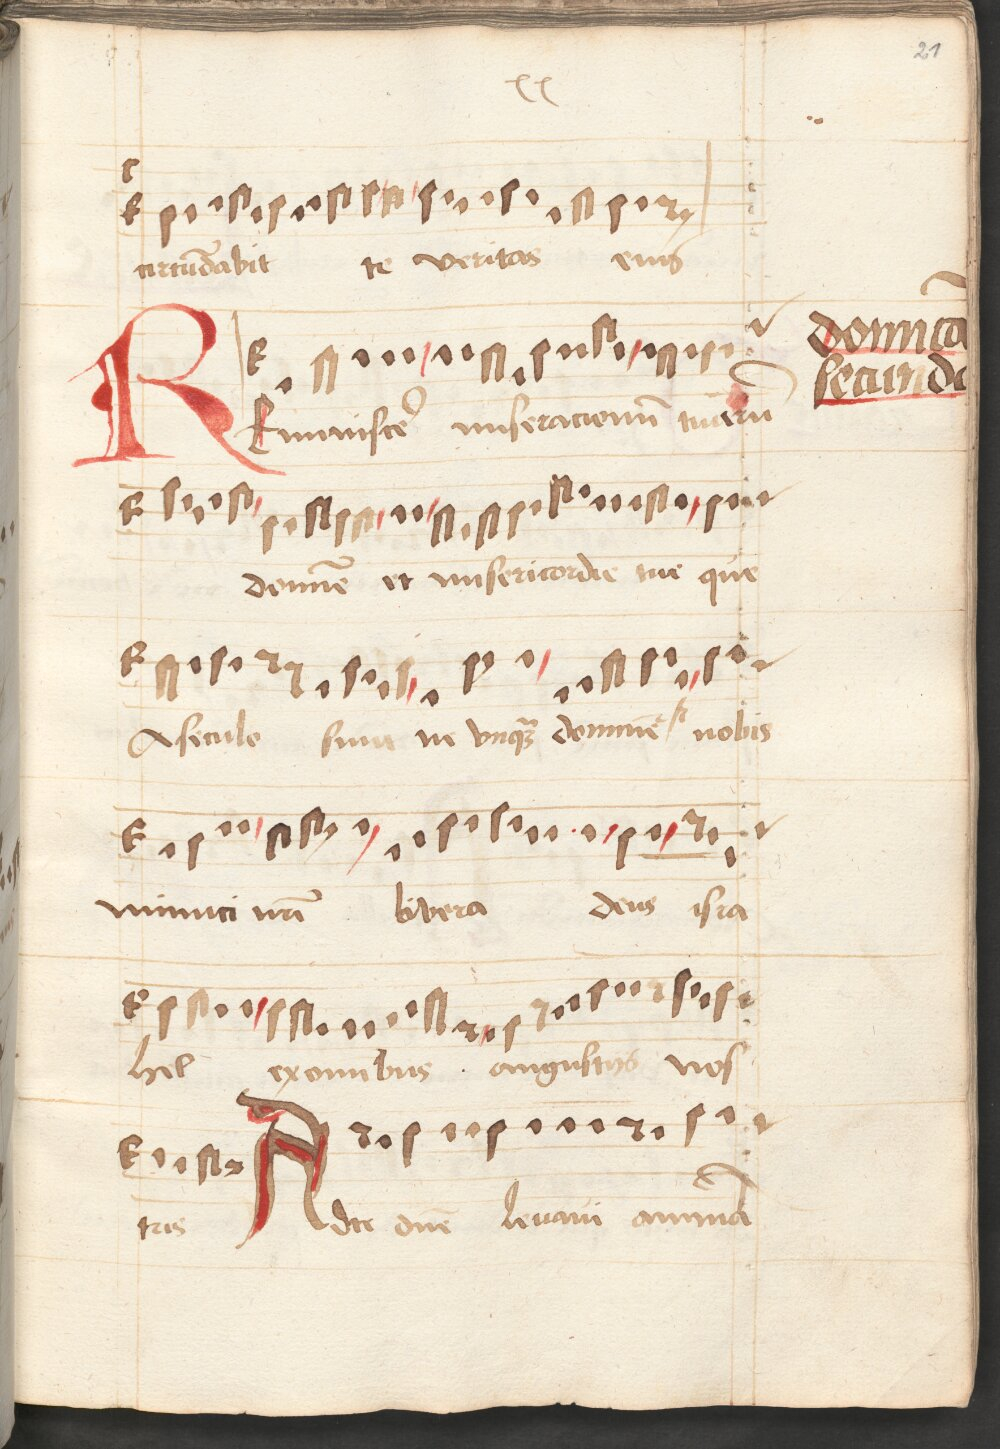 21
xx
circūdabit te veritas eius
domīca
secunda
REminiscere miseracionū tuarū
dominē et misericordie tue que
A seculo sunt ne vnquā dominē nobis
inimici nrī libera deus isra
hel ex omnibus angustijs nos
tris Ad te dnē levavi animā